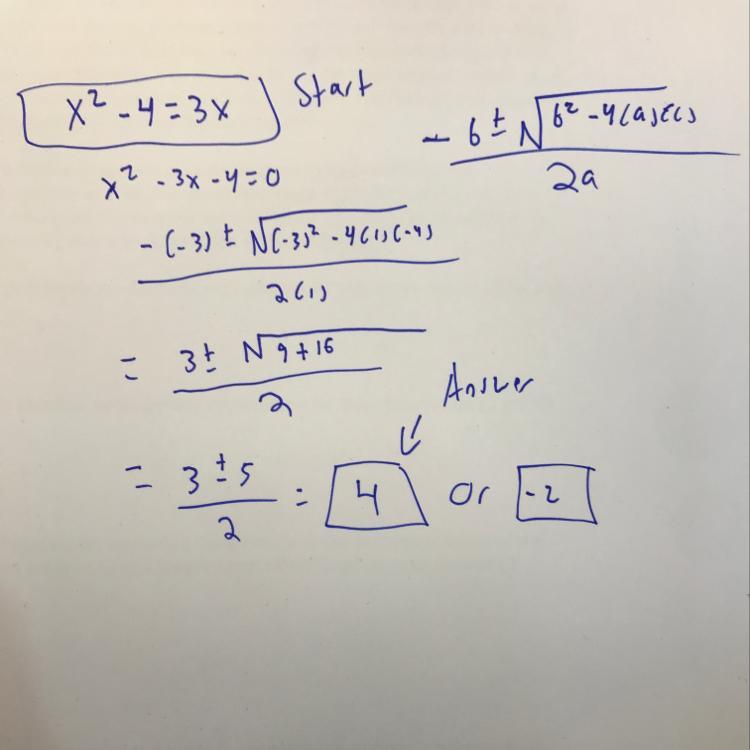 x² - 4 = 3x Start
- b ± √b² - 4(a)(c)
2a
x² - 3x - 4 = 0
-(-3) ± √(-3)² - 4(1)(-4)
2(1)
= 3 ± √9 + 16
2
Answer
= 3 ± 5
2
= 4 or -2